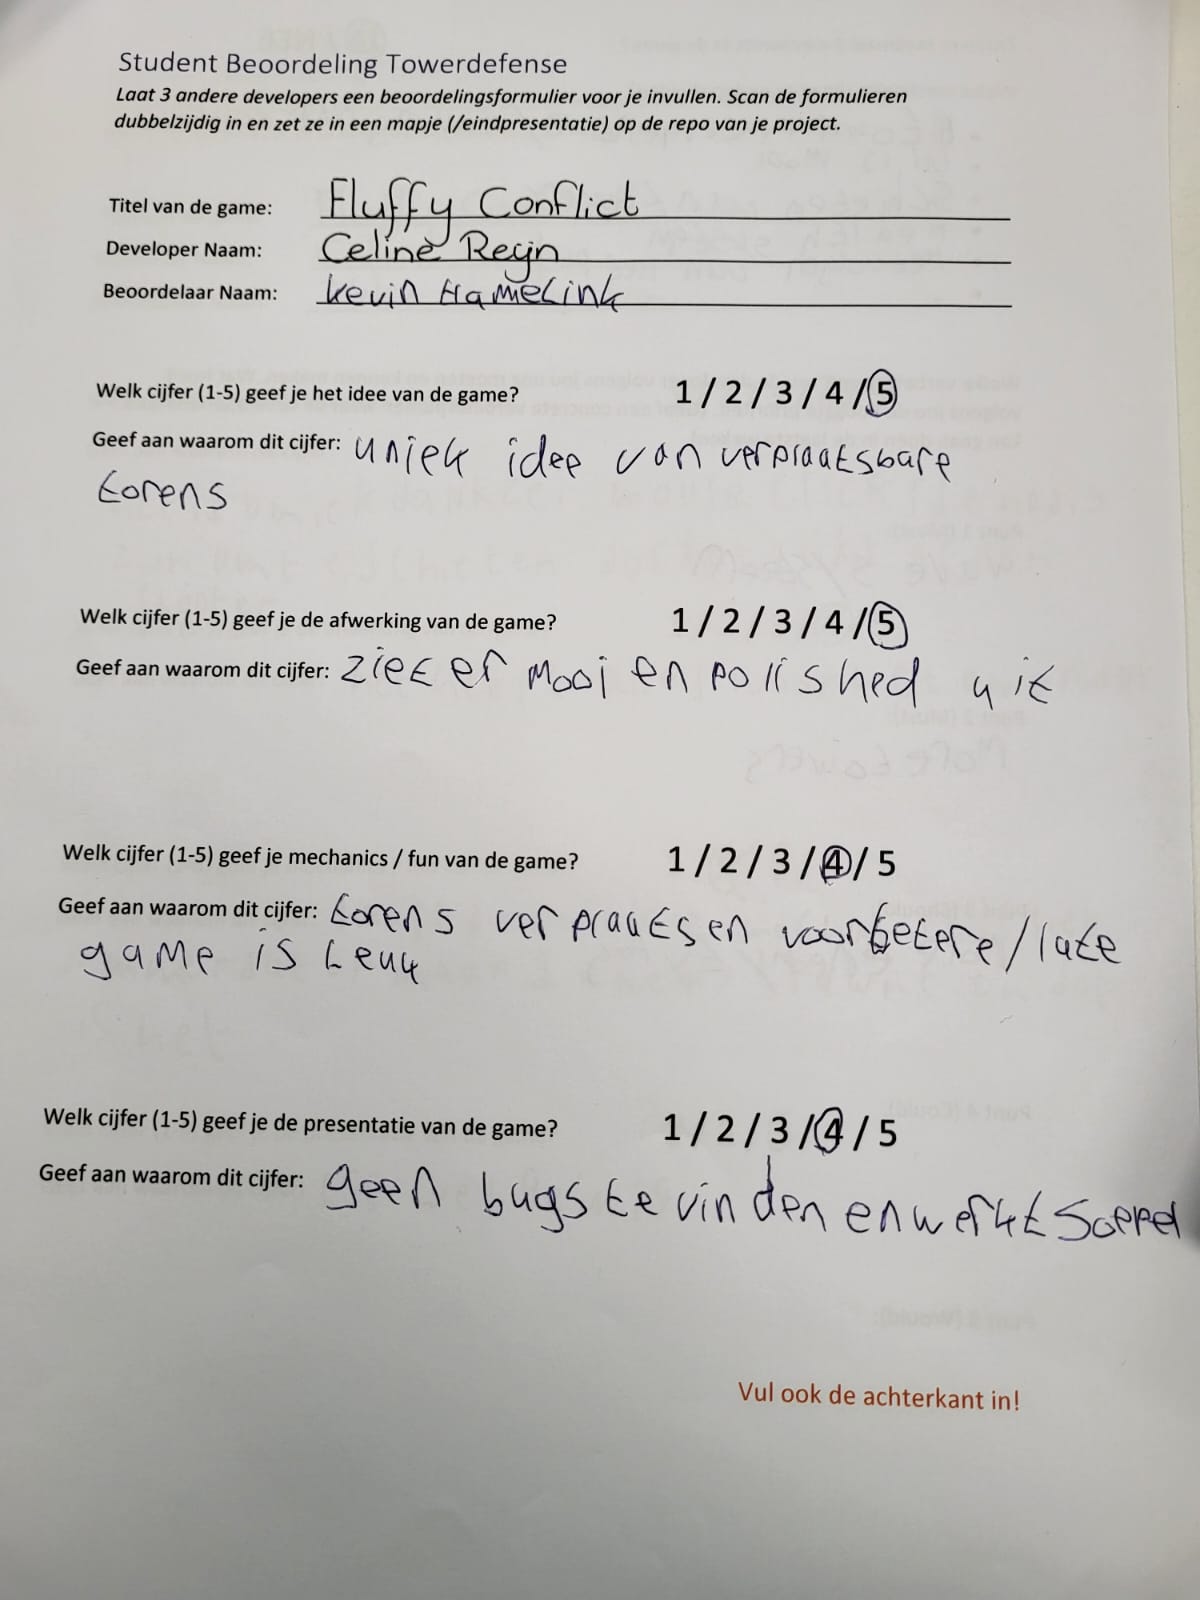 Student Beoordeling Towerdefense
Laat 3 andere developers een beoordelingsformulier voor je invullen. Scan de formulieren
dubbelzijdig in en zet ze in een mapje (/eindpresentatie) op de repo van je project.
Titel van de game: Fluffy Conflict
Developer Naam: Celine Reijn
Beoordelaar Naam: kevin Hamelink
Welk cijfer (1-5) geef je het idee van de game? 1 / 2 / 3 / 4 / 5
Geef aan waarom dit cijfer: uniek idee van verplaatsbare
torens
Welk cijfer (1-5) geef je de afwerking van de game? 1 / 2 / 3 / 4 / 5
Geef aan waarom dit cijfer: ziet er mooi en polished uit
Welk cijfer (1-5) geef je mechanics / fun van de game? 1 / 2 / 3 / 4 / 5
Geef aan waarom dit cijfer: torens verplaatsen voor betere / late
game is leuk
Welk cijfer (1-5) geef je de presentatie van de game? 1 / 2 / 3 / 4 / 5
Geef aan waarom dit cijfer: geen bugs te vinden en werkt soepel
Vul ook de achterkant in!